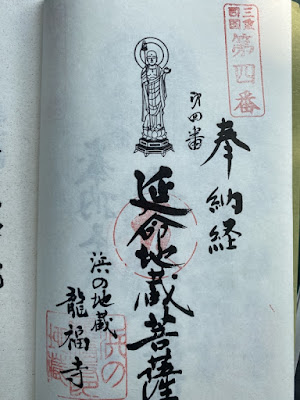 三重
四国
第四番
奉納経
第四番
延命地蔵菩薩
浜の地蔵
龍福寺